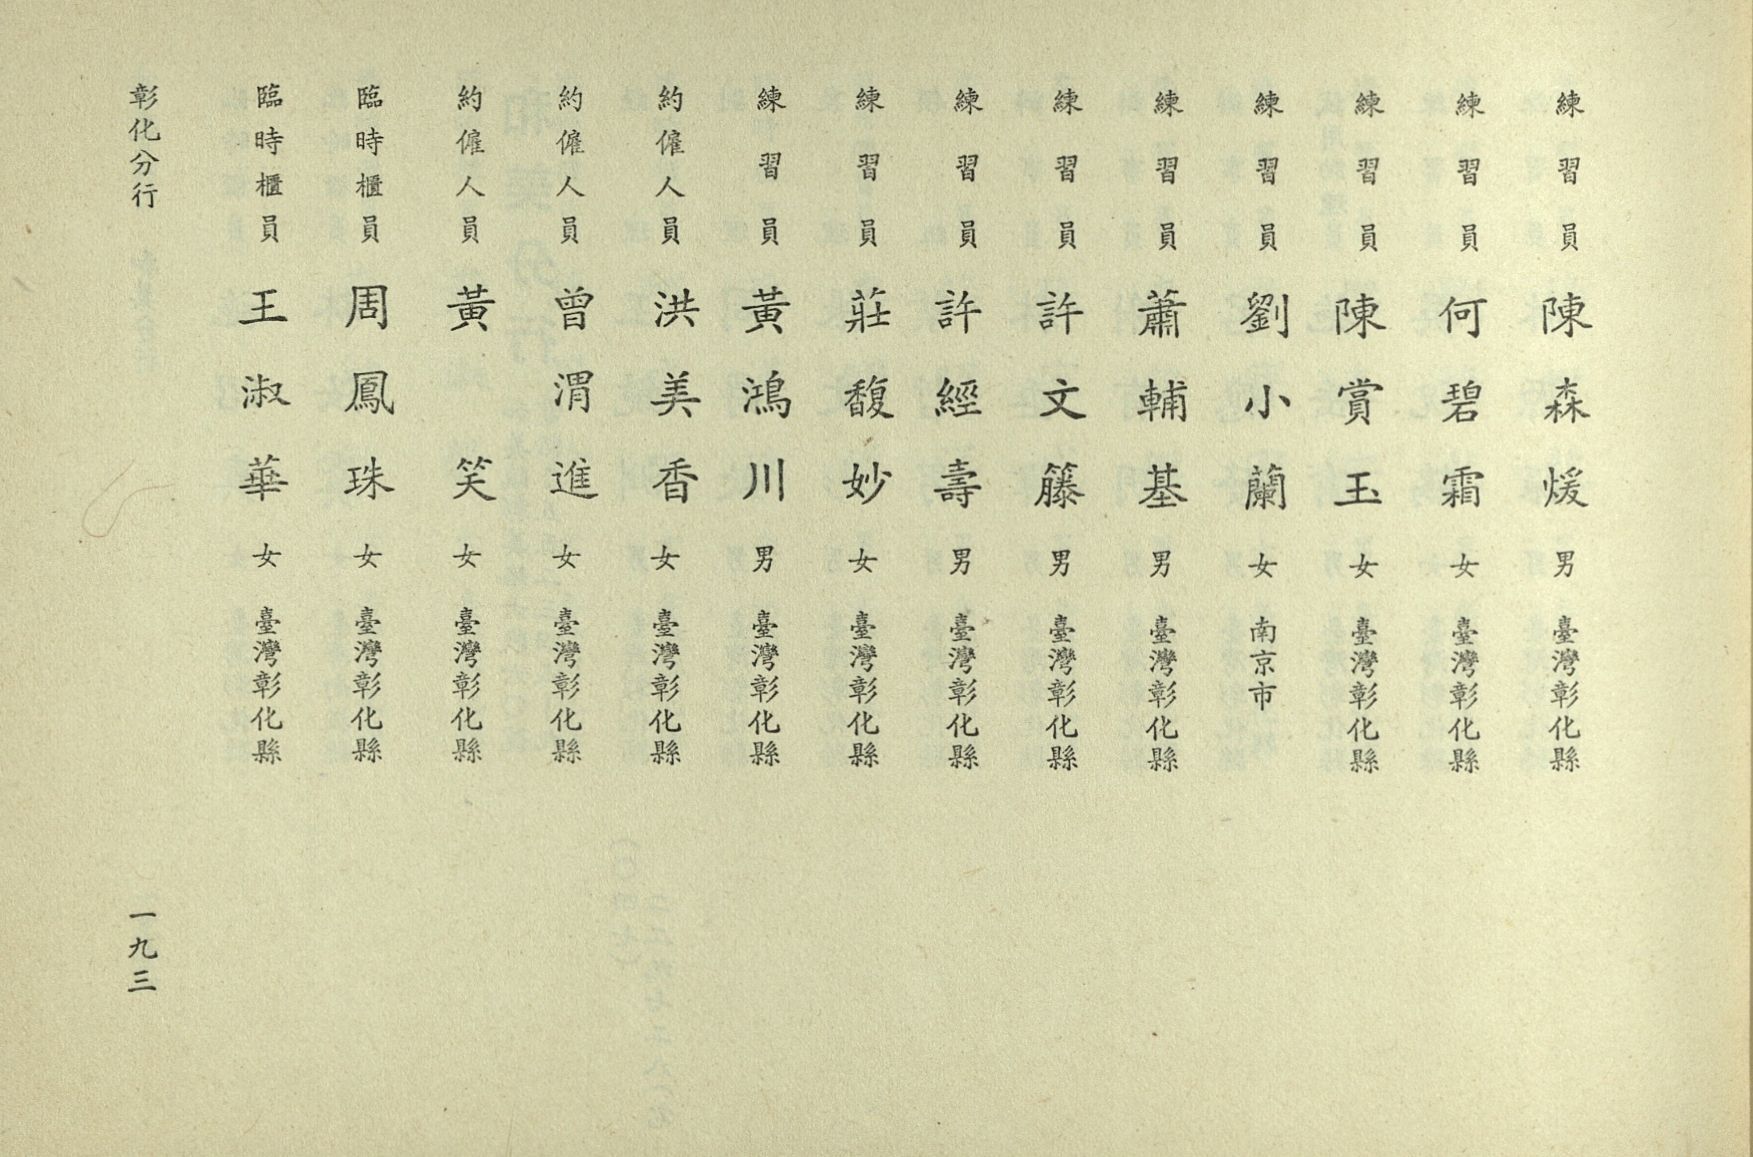 練習員 陳森煖 男 臺灣彰化縣
練習員 何碧霜 女 臺灣彰化縣
練習員 陳賞玉 女 臺灣彰化縣
練習員 劉小蘭 女 南京市
練習員 蕭輔基 男 臺灣彰化縣
練習員 許文籐 男 臺灣彰化縣
練習員 許經壽 男 臺灣彰化縣
練習員 莊馥妙 女 臺灣彰化縣
練習員 黃鴻川 男 臺灣彰化縣
約僱人員 洪美香 女 臺灣彰化縣
約僱人員 曾渭進 女 臺灣彰化縣
約僱人員 黃笑 女 臺灣彰化縣
臨時櫃員 周鳳珠 女 臺灣彰化縣
臨時櫃員 王淑華 女 臺灣彰化縣
彰化分行 一九三